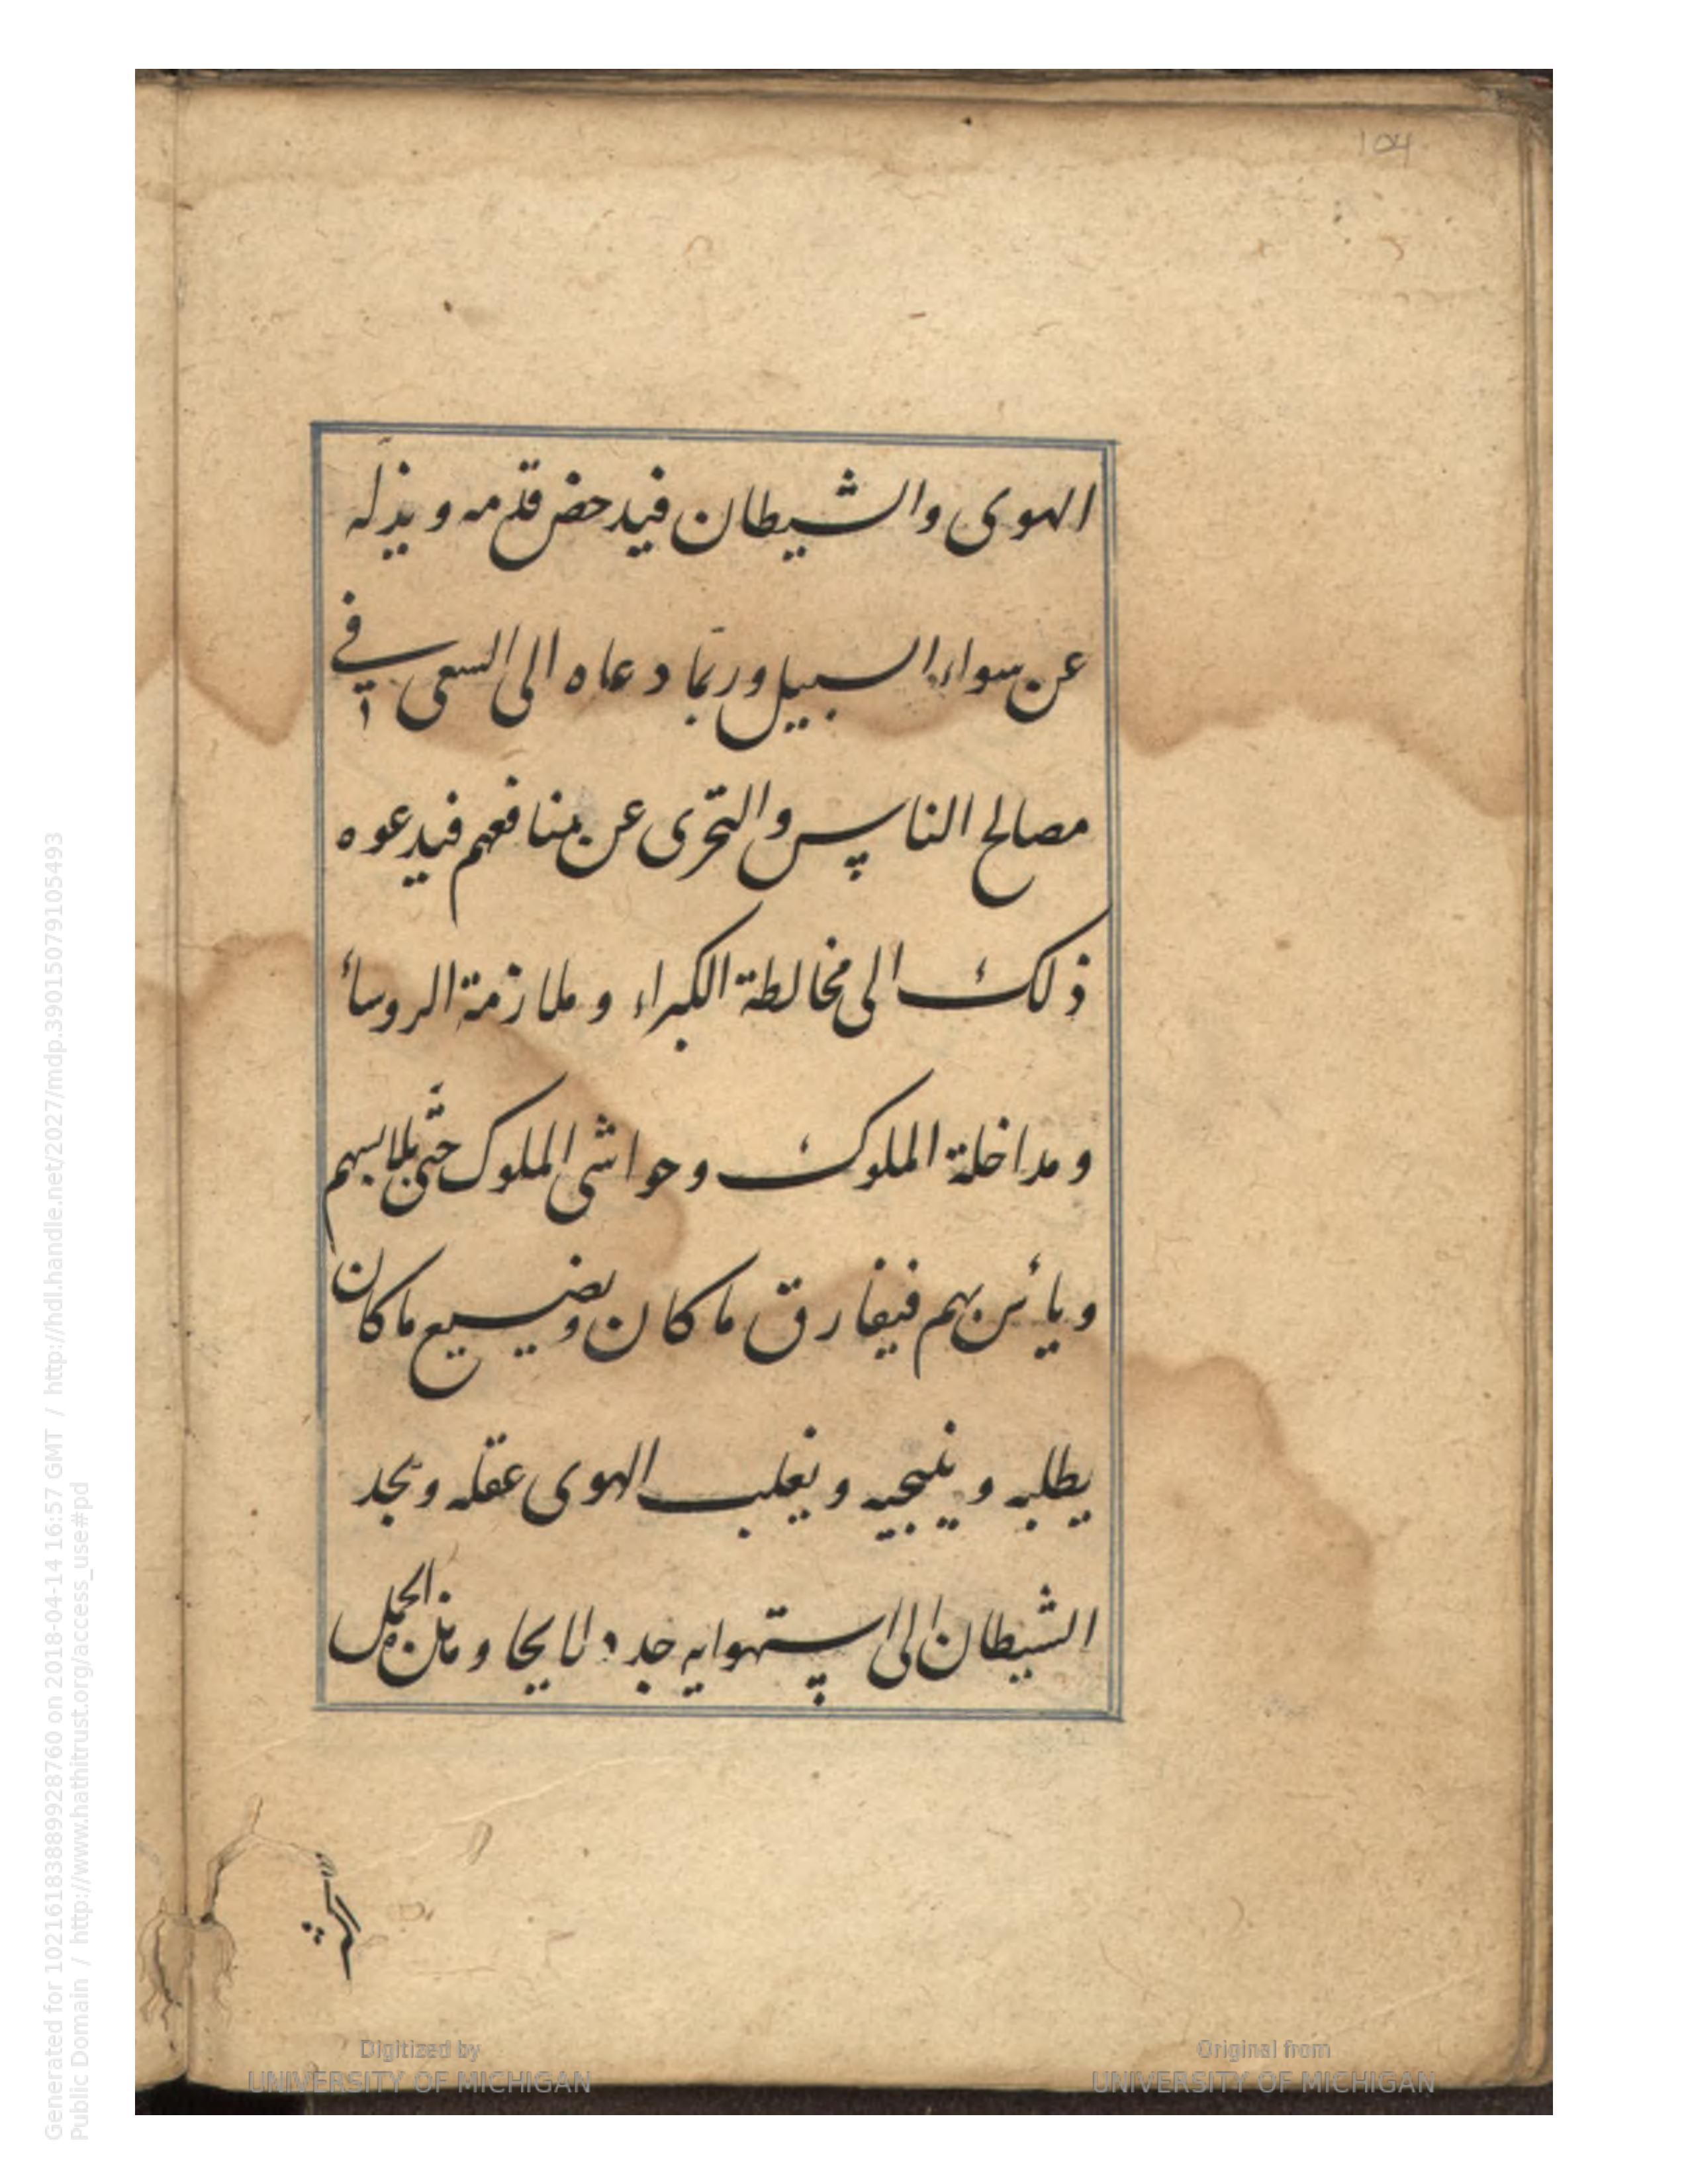 104
الهوى والشيطان فيدحض قدمه ويذله
عن سواء السبيل وربما دعاه الى السعى في
مصالح الناس والتحرى عن منافعهم فيدعوه
ذلك الى مخالطة الكبراء وملازمة الروسائ
ومداخلة الملوك وحواشى الملوك حتى يلابسهم
ويائس بهم فيفارق ما كان ويضيع ما كان
يطلبه وينيجيه ويغلب الهوى عقله ويجد
الشيطان الى استهوايه جددا لايحا ومن
Digitized by
UNIVERSITY OF MICHIGAN
Original from
UNIVERSITY OF MICHIGAN
Generated for 102161838899928760 on 2018-04-14 16:57 GMT / http://hdl.handle.net/2027/mdp.39015079105493
Public Domain / http://www.hathitrust.org/access_use#pd